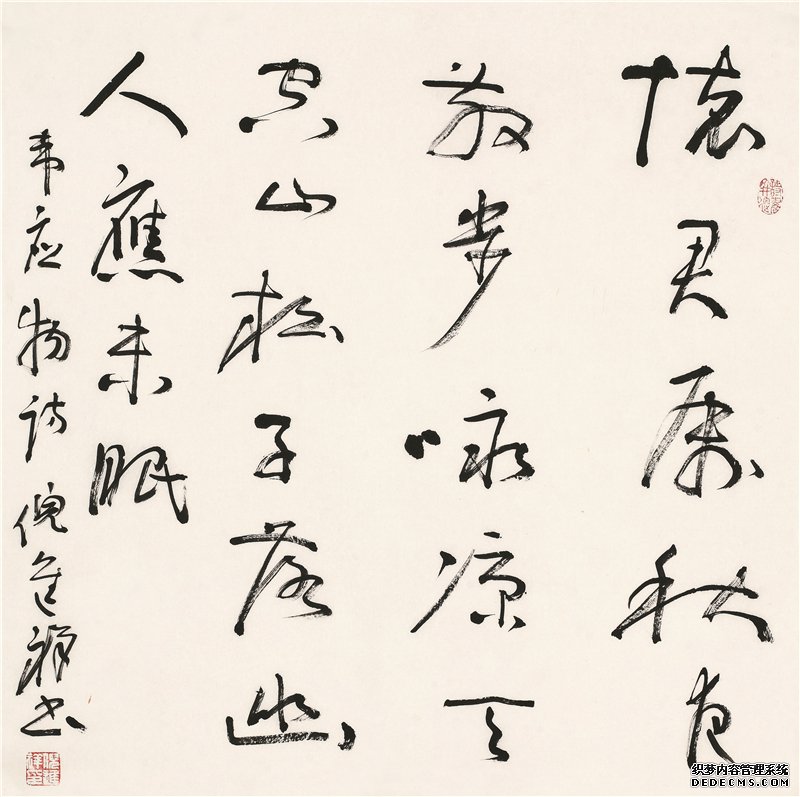 懷君屬秋夜
散步咏凉天
空山松子落幽
人應未眠
韦应物诗倪進祥书
织梦内容管理系统
DEDECMS.COM